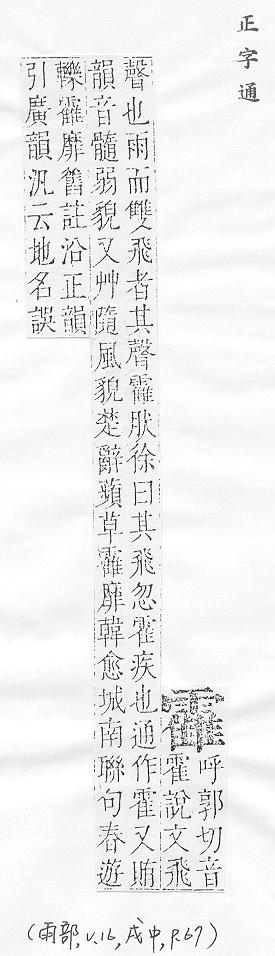 正字通
靃
呼郭切音
霍說文飛
聲也雨而雙飛者其聲靃肰徐曰其飛忽霍疾也通作霍又賄
韻音髓弱貌又艸隨風貌楚辭蘋草靃靡韓愈城南聯句春遊
轢靃靡舊註沿正韻
引廣韻汎云地名誤
(雨部, v.16, 戌中, p.67)